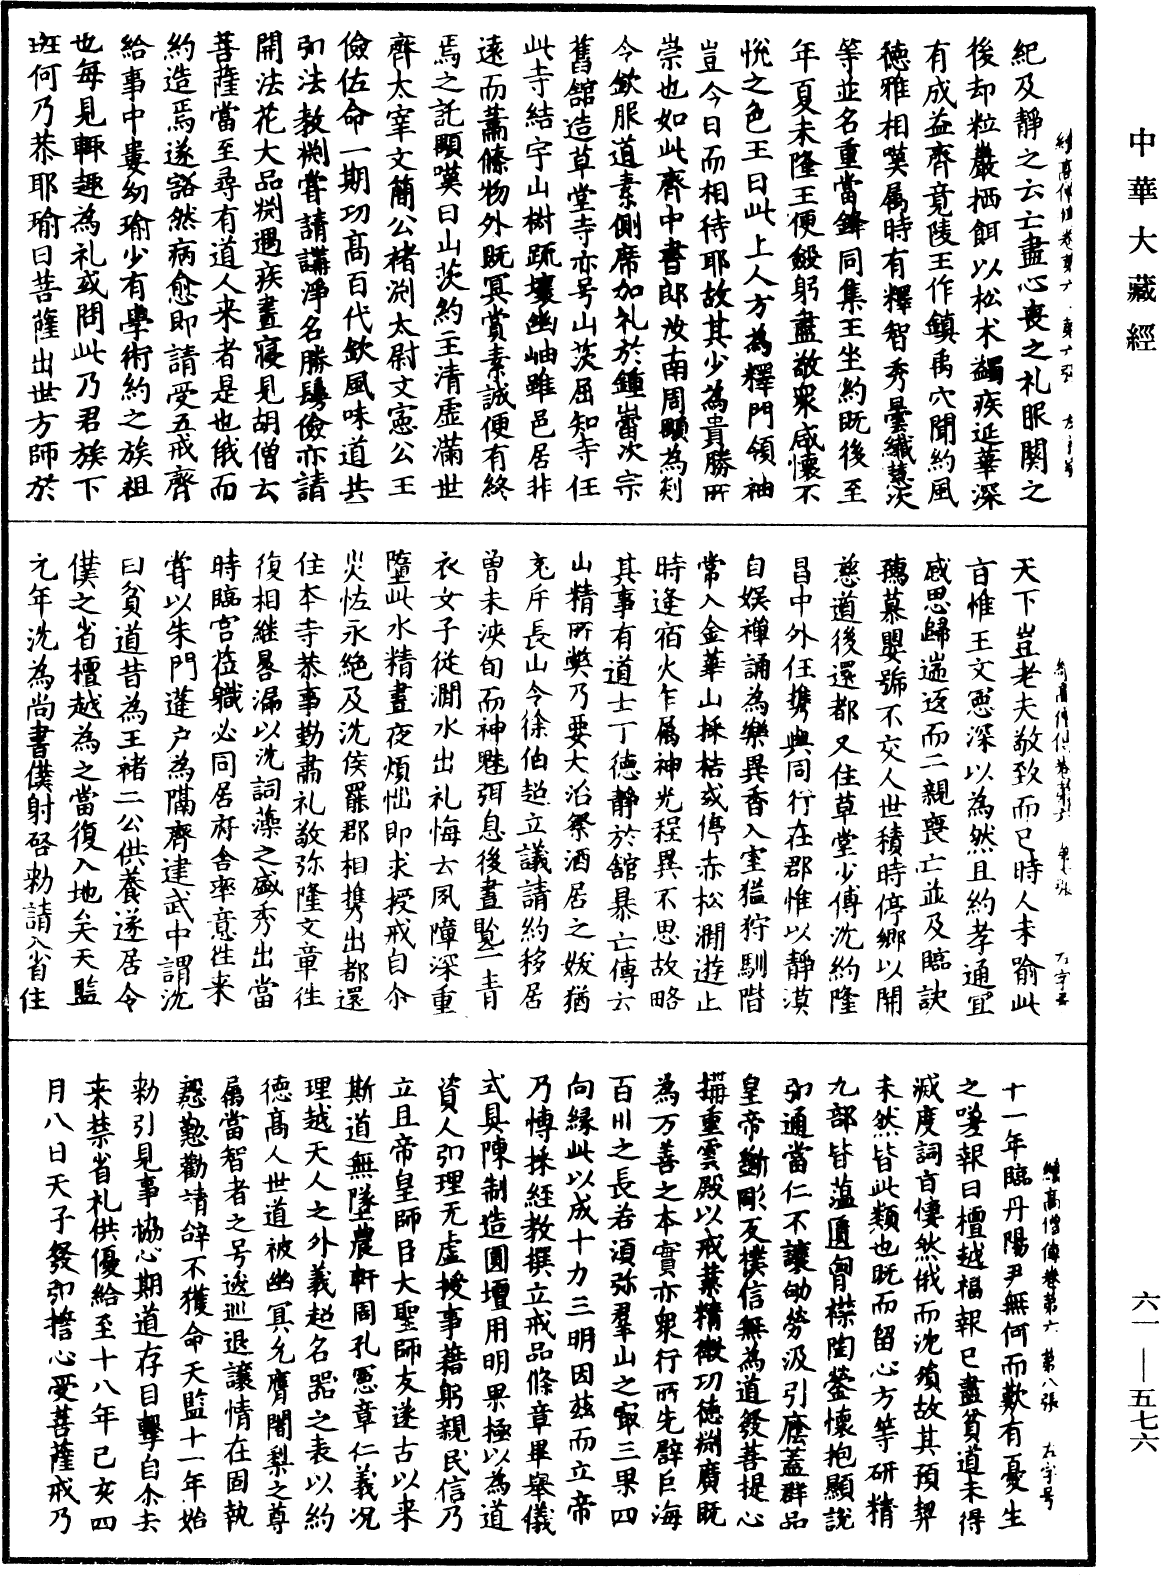 中華大藏經
續高僧傳卷第六 第六張 左字号
紀及靜之云亡盡心喪之礼服闋之
後却粒巖栖餌以松朮蠲疾延華深
有成益齊竟陵王作鎮禹穴聞約風
德雅相嘆属時有釋智秀曇纖慧次
等並名重當鋒同集王坐約既後至
年夏未隆王便斂躬盡敬衆咸懷不
悅之色王曰此上人方為釋門領袖
豈今日而相待耶故其少為貴勝所
崇也如此齊中書郎汝南周顒為剡
今欽服道素側席加礼於鍾嶺次宗
舊舘造草堂寺亦号山茨屈知寺任
此寺結宇山樹疏壤幽岫雖邑居非
遠而蕭條物外既冥賞素誠便有終
焉之託顒嘆曰山茨約王清虛滿世
齊太宰文簡公褚渕太尉文憲公王
儉佐命一期功高百代欽風味道共
弘法教渕甞請講淨名勝鬘儉亦請
開法花大品渕遇疾晝寢見胡僧云
菩薩當至尋有道人来者是也俄而
約造焉遂豁然病愈即請受五戒齊
給事中婁幼瑜少有學術約之族祖
也每見輙趣為礼或問此乃君族下
班何乃恭耶瑜曰菩薩出世方師於
續高僧傳卷第六 第七張 左字号
天下豈老夫敬致而已時人未喻此
言惟王文憲深以為然且約孝通冥
感思歸遄返而二親喪亡並及臨訣
孺慕嬰號不交人世積時停鄉以開
慈道後還都又住草堂少傅沈約隆
昌中外任携與同行在郡惟以靜漠
自娛禪誦為樂異香入室猛狩馴階
常入金華山採桔或停赤松澗遊止
時逢宿火乍属神光程異不思故略
其事有道士丁德靜於舘暴亡傳云
山精所斃乃要大治祭酒居之妖猶
充斥長山令徐伯超立議請約移居
曾未浹旬而神魅弭息後晝覧二青
衣女子從澗水出礼悔云夙障深重
墮此水精晝夜煩惱即求授戒自尒
災怪永絕及沈侯罷郡相携出都還
住本寺恭事勤肅礼敬弥隆文章往
復相継晷漏以沈詞藻之盛秀出當
時臨官莅職必同居府舍率意往来
甞以朱門蓬戶為隔齊建武中謂沈
曰貧道昔為王褚二公供養遂居令
僕之省檀越為之當復入地矣天監
元年沈為尚書僕射啓勑請入省住
續高僧傳卷第六 第八張 左字号
十一年臨丹陽尹無何而歎有憂生
之嗟報曰檀越福報已盡貧道未得
滅度詞旨悽然俄而沈殞故其預契
未然皆此類也既而留心方等研精
九部皆蘊匱胷襟陶鎣懷抱顯說
弘通當仁不讓劬勞汲引廕蓋群品
皇帝斵彫反樸信無為道發菩提心
搆重雲殿以戒業精微功德渕廣既
為万善之本實亦衆行所先辟巨海
百川之長若須弥羣山之冣三果四
向縁此以成十力三明因兹而立帝
乃博採經教撰立戒品條章畢舉儀
式具陳制造圓壇用明果極以為道
資人弘理无虛授事藉躬親民信乃
立且帝皇師臣大聖師友遂古以来
斯道無墜農軒周孔憲章仁義况
理越天人之外義超名器之表以約
德高人世道被幽冥允膺闍梨之尊
属當智者之号逡巡退讓情在固執
懃懃勸請辤不獲命天監十一年始
勑引見事協心期道存目擊自尒去
来禁省礼供優給至十八年己亥四
月八日天子發弘擔心受菩薩戒乃
六一——五七六